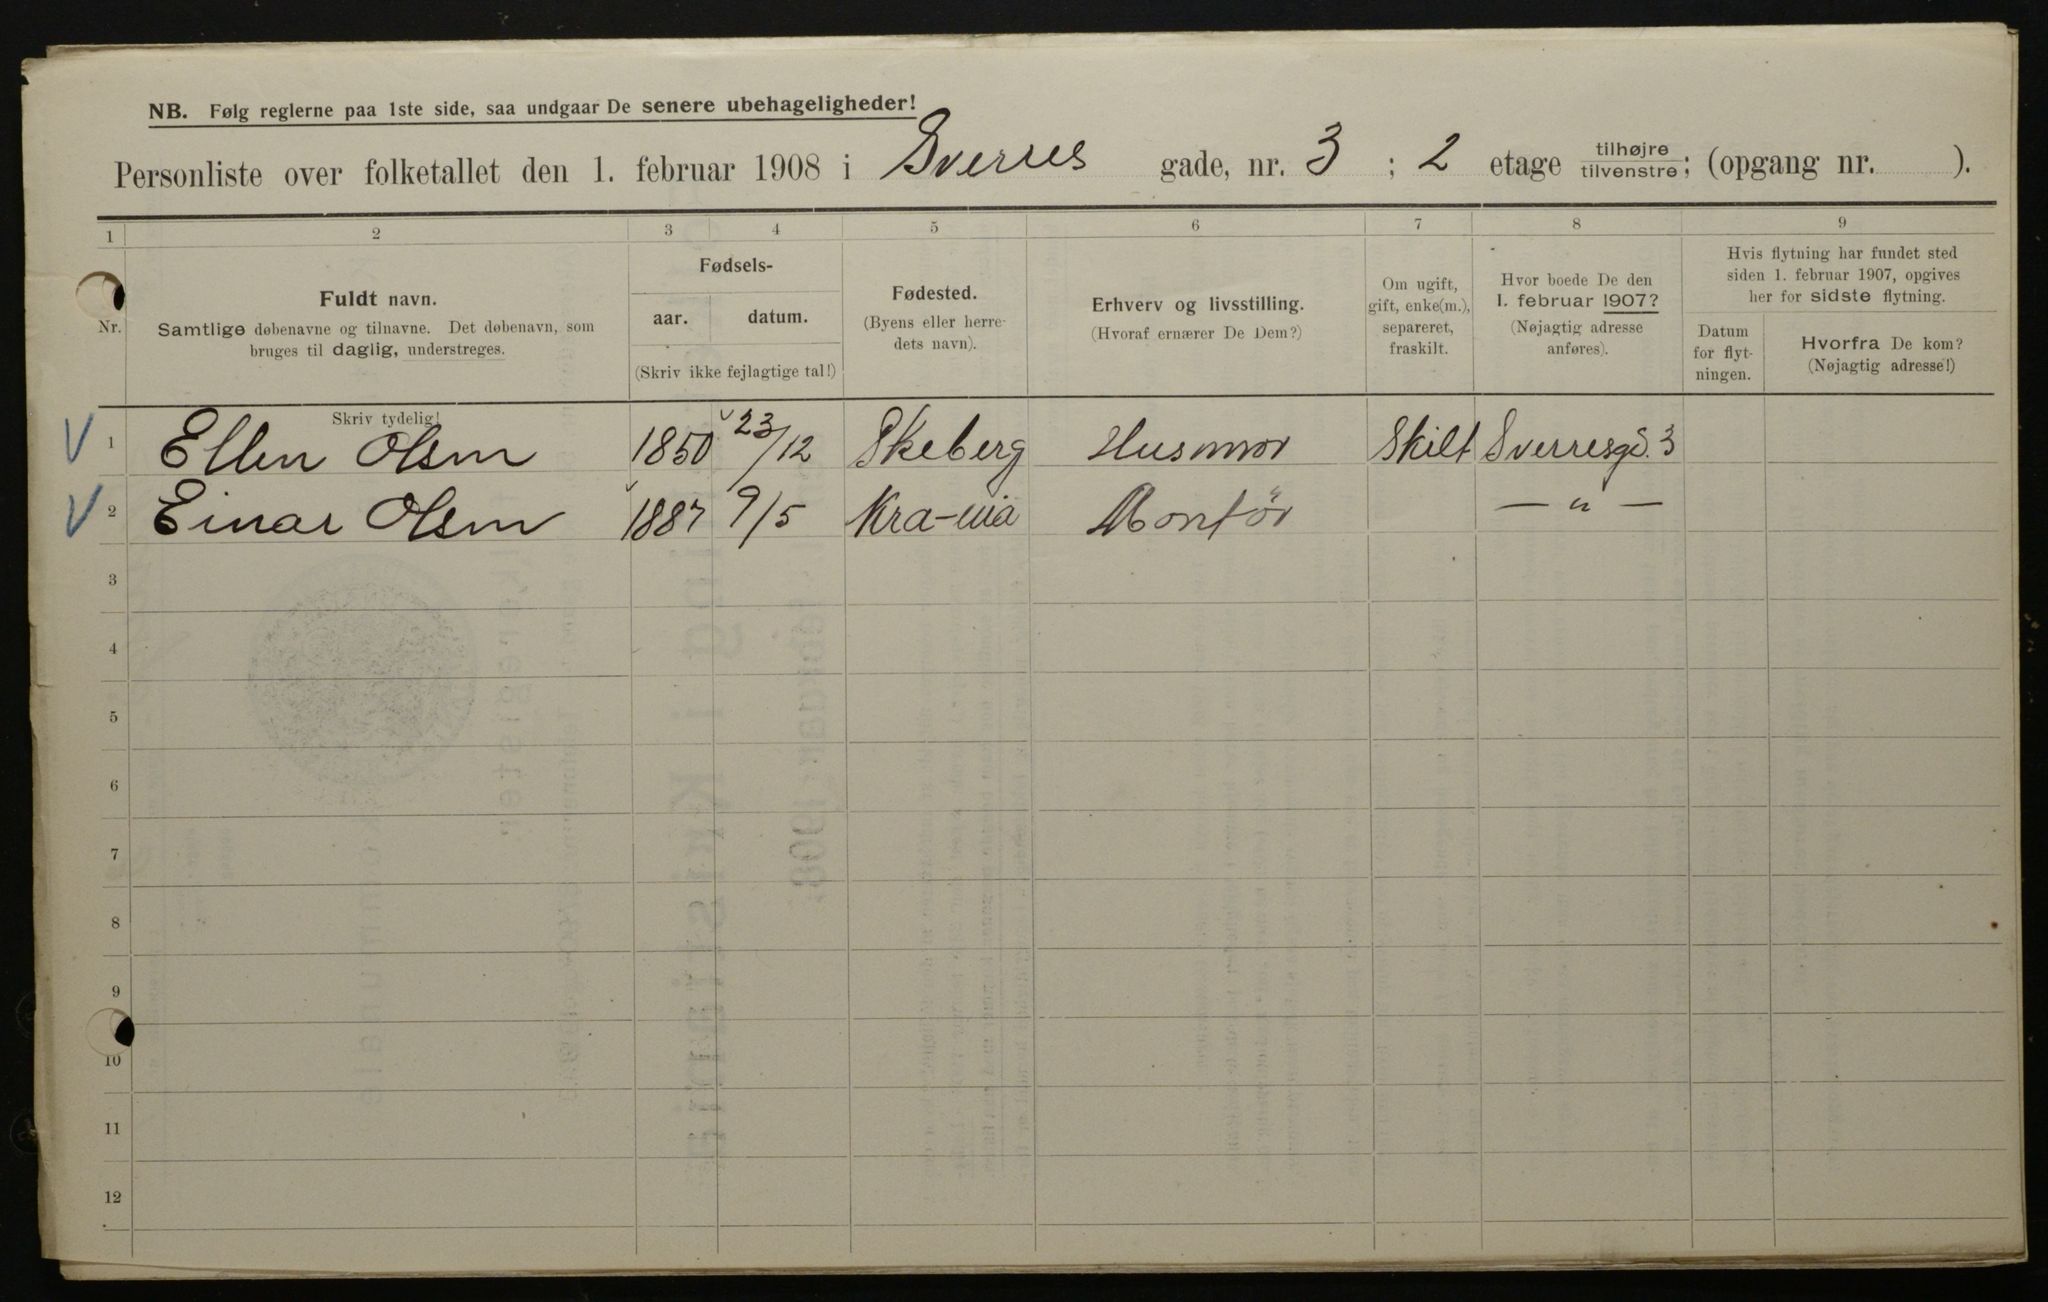 NB. Følg reglerne paa 1ste side, saa undgaar De senere ubehageligheder!
Personliste over folketallet den 1. februar 1908 i Sverres gade, nr. 3 ; 2 etage tilhøjre / tilvenstre; (opgang nr. ).
1 2 3 4 5 6 7 8 9
Nr.
Fuldt navn.
Samtlige døbenavne og tilnavne. Det døbenavn, som
bruges til daglig, understreges.
Skriv tydelig!
Fødsels-
aar. datum.
(Skriv ikke fejlagtige tal!)
Fødested.
(Byens eller herre-
dets navn).
Erhverv og livsstilling.
(Hvoraf ernærer De Dem?)
Om ugift,
gift, enke(m.),
separeret,
fraskilt.
Hvor boede De den
1. februar 1907?
(Nøjagtig adresse
anføres).
Hvis flytning har fundet sted
siden 1. februar 1907, opgives
her for sidste flytning.
Datum
for flyt-
ningen.
Hvorfra De kom?
(Nøjagtig adresse!)
1 Ellen Olsen 1850 23/12 Skeberg Husmor Skilt Sverresgd. 3
2 Einar Olsen 1887 9/5 Kra-nia Montør — " —
3
4
5
6
7
8
9
10
11
12